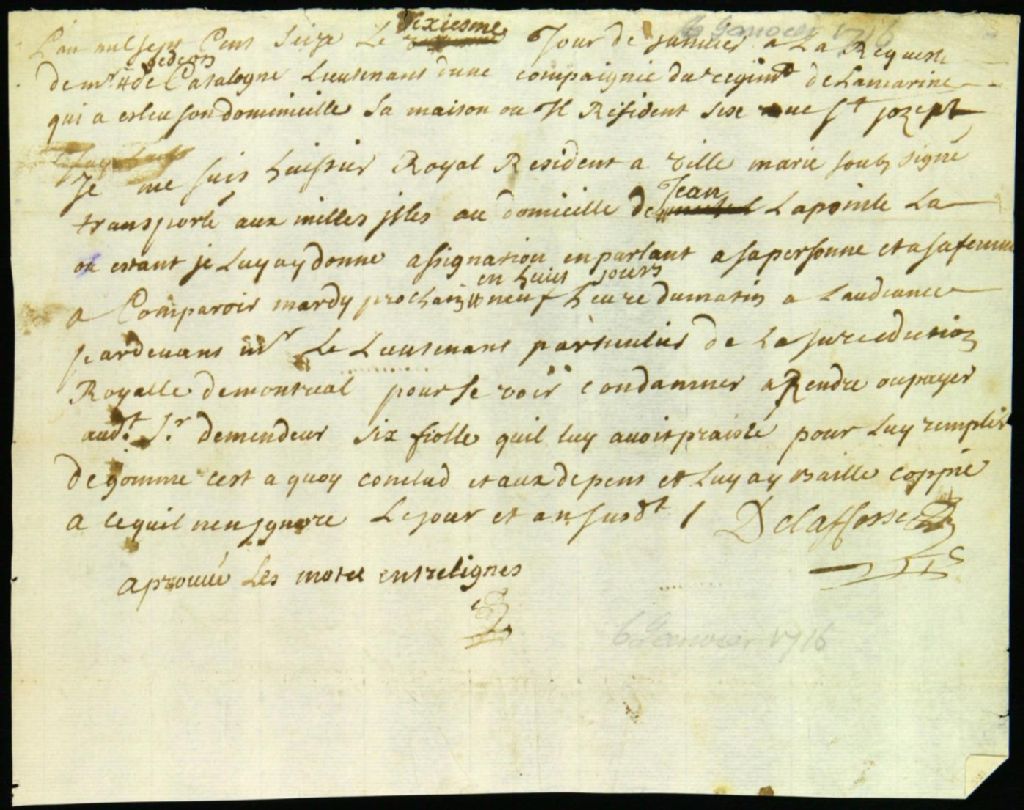 L'an mil sept Cens Seize Le Sixiesme Jour de janvier a La Requeste
6 Janvier 1716
de mr Gedeon de Catalogne Lieutenans dune compaignie du regimt de Lamarine
qui a esleu son domicille Sa maison ou Il Résident size rue st jozeph
Je me suis huissier Royal Resident a ville marie soub signé
transporté aux milles jsles au domicille de Jean Lapointe La
ou estant je Luy ay donne assignation en parlant a sa personne et a sa femme
a Comparoir mardy prochain en huict jours neuf heure du matin a Laudiance
pardevans mr Le Lieutenans particulier de La jurediction
Royalle de montreal pour se voir condamner a Rendre ou payer
audt Sr demendeur six fiolle quil luy avoit praisté pour Luy remplir
de gomme cest a quoy conclud et aux depens et Luy ay Baille coppie
a ce quil nen jgnore Le jour et an susdt / Delafosse
aprouvé Les motce entrelignes
6 Janvier 1716